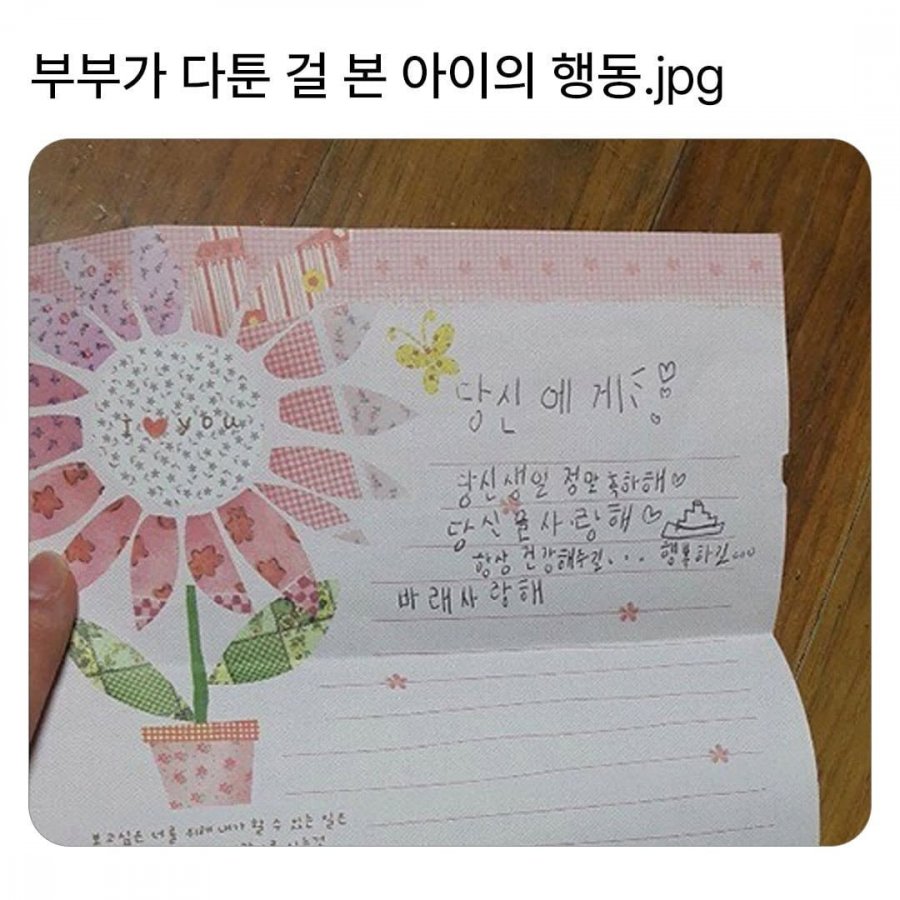 부부가 다툰 걸 본 아이의 행동.jpg
I ♥ you
당신에게
당신생일 정말 축하해♡
당신을사랑해♡
항상 건강해주길... 행복하길...
바래사랑해
보고싶은 너를 위해 내가 할 수 있는 일은